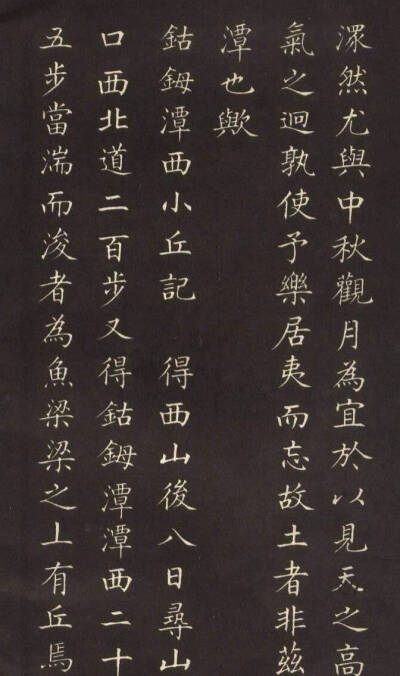 潀然尤與中秋觀月為宜於以見天之高
氣之迥孰使予樂居夷而忘故土者非茲
潭也歟
鈷鉧潭西小丘記 得西山後八日尋山
口西北道二百步又得鈷鉧潭潭西二十
五步當湍而浚者為魚梁梁之上有丘焉